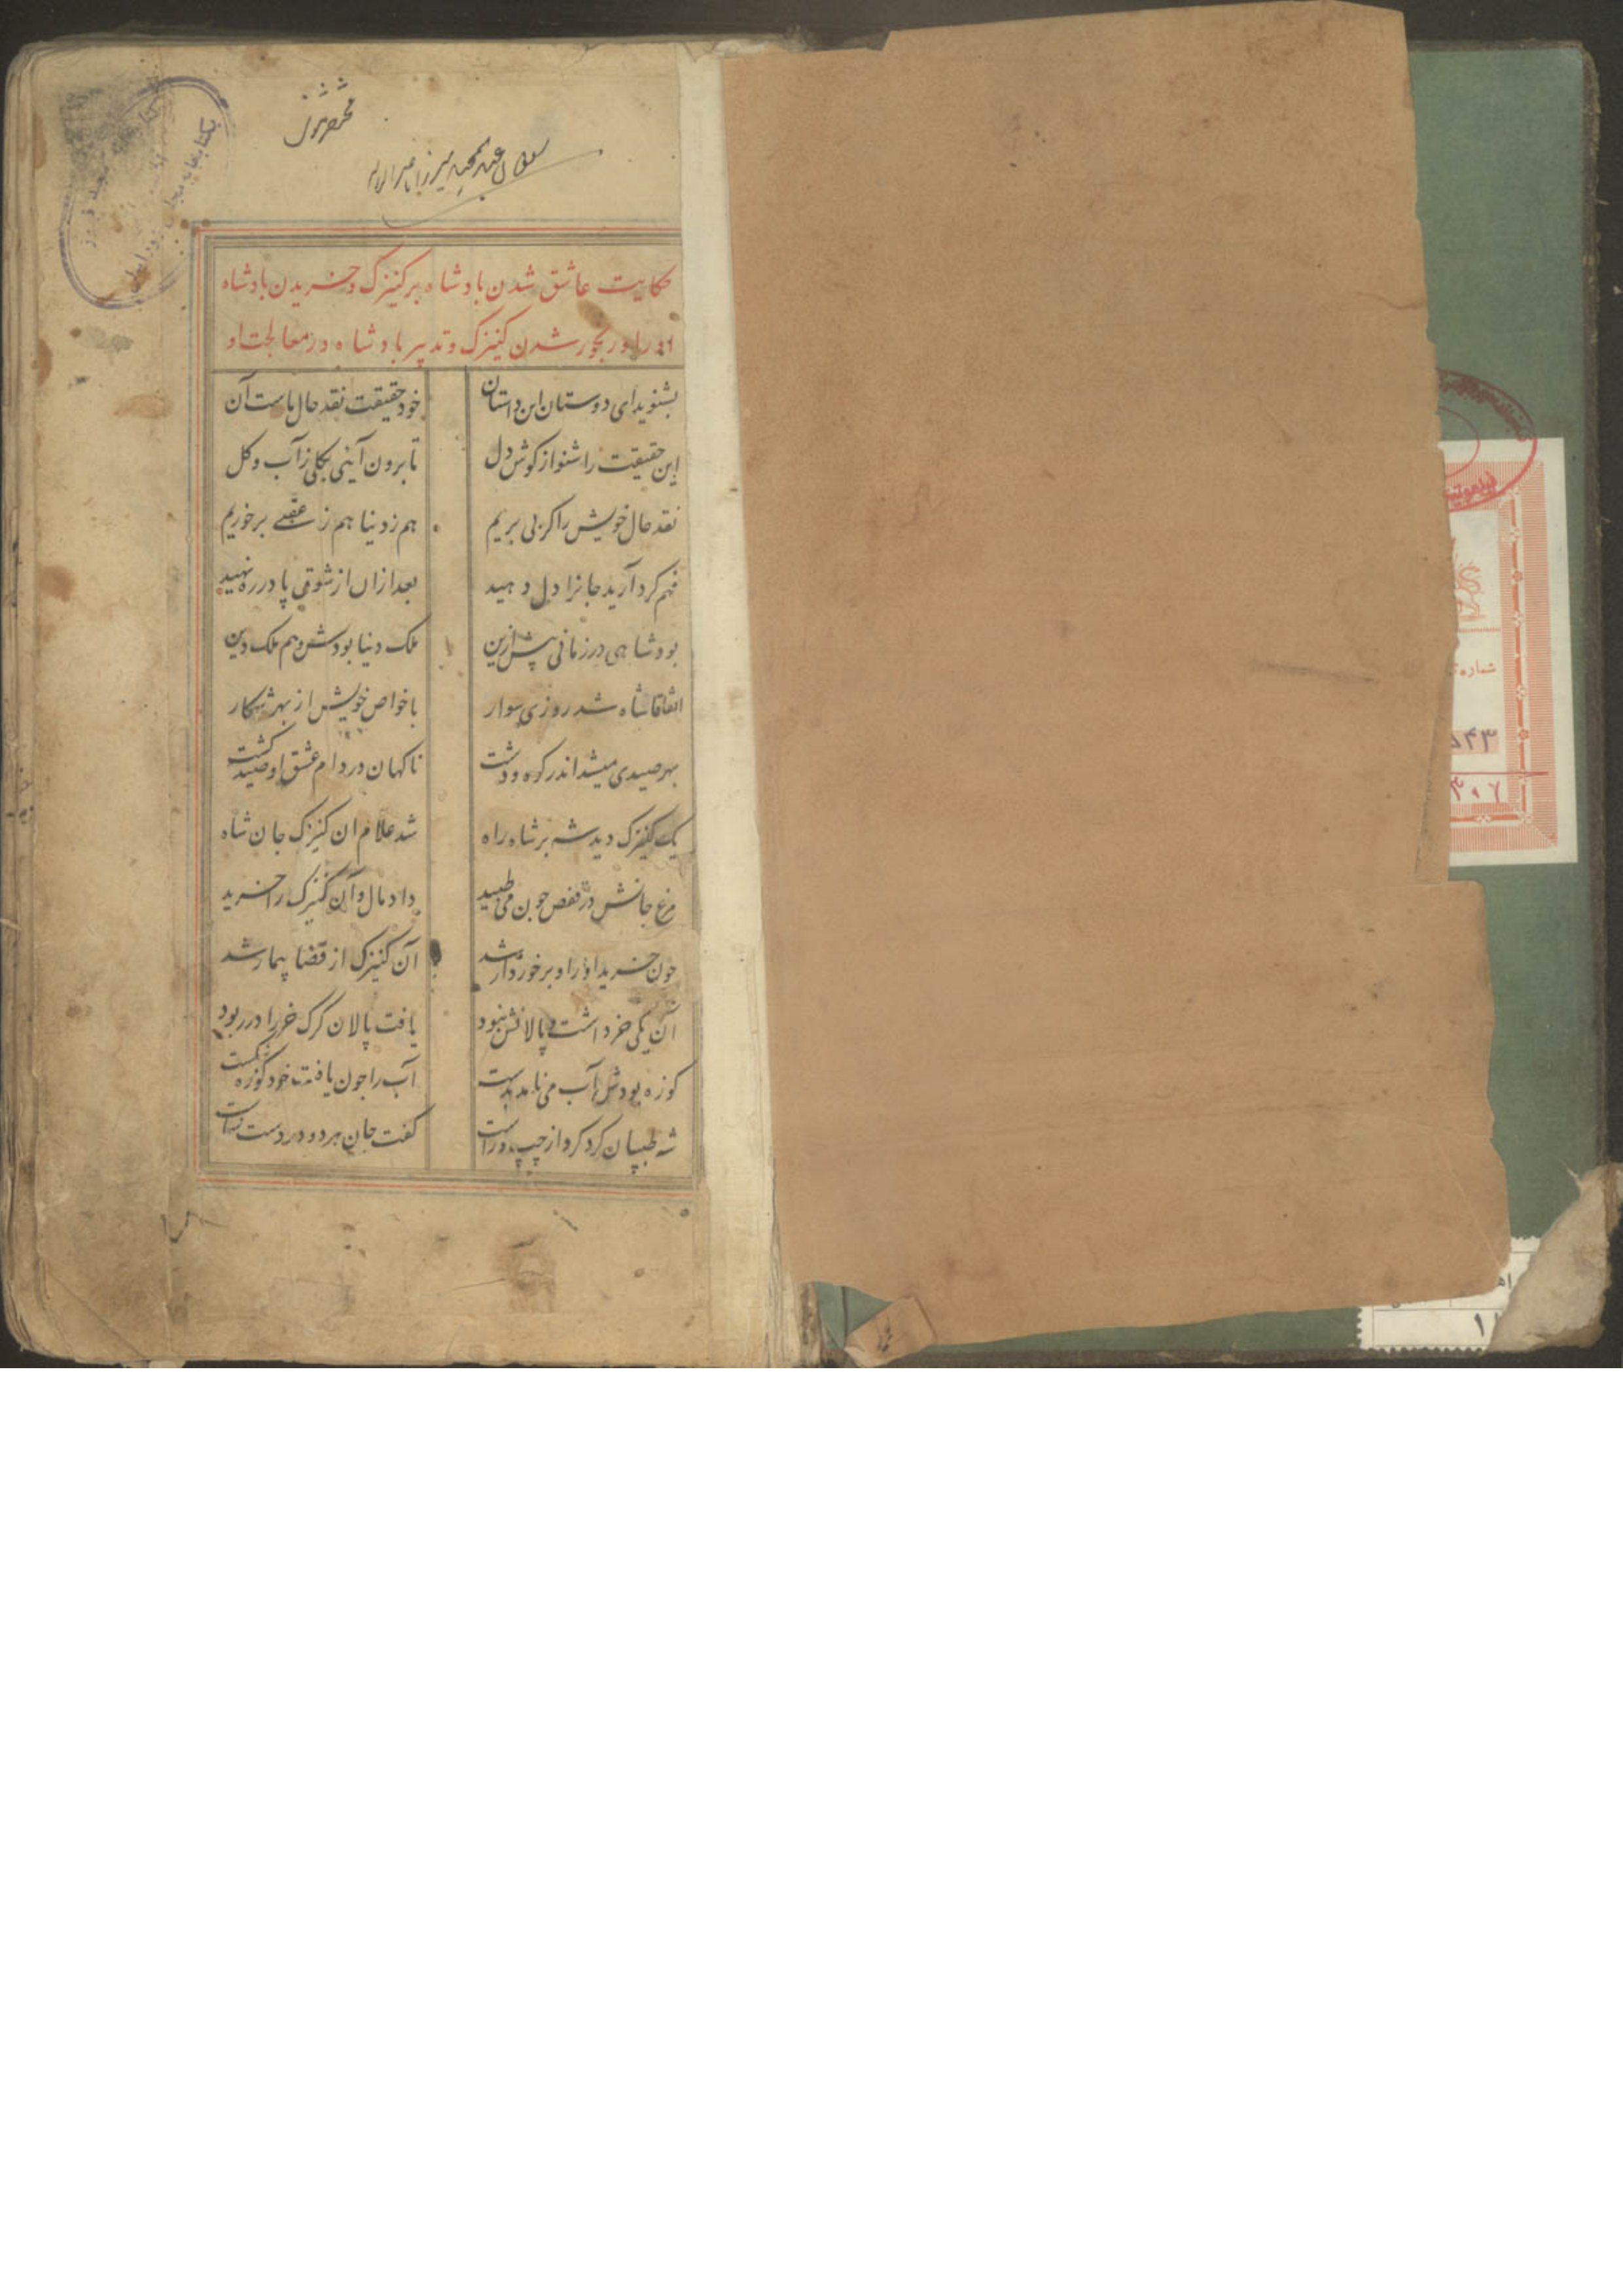 حکایت عاشق شدن بادشاه بر کنیزک و خریدن بادشاه
او را و رنجور شدن کنیزک و تدبیر بادشاه در معالجت او
بشنوید ای دوستان این داستان خود حقیقت نقد حال ماست آن
این حقیقت را شنو از کوش دل تا برون آئی بکلی ز آب و کل
نقد حال خویش را کر پی بریم هم ز دنیا هم ز عقبی برخوریم
فهم کرد آرید جانرا دل دهید بعد ازان از شوق پا در ره نهید
بود شاهی در زمانی پیش ازین ملک دنیا بودش و هم ملک دین
اتفاقا شاه شد روزی سوار با خواص خویش از بهر شکار
بهر صیدی میشد اندر کوه و دشت ناکهان در دام عشق او صید کشت
یک کنیزک دید شه بر شاه راه شد غلام ان کنیزک جان شاه
مرغ جانش در قفص جون می طپید داد مال و آن کنیزک را خرید
جون خرید او را و برخوردار شد آن کنیزک از قضا بیمار شد
آن یکی خر داشت و پالانش نبود یافت پالان کرک خر را در ربود
کوزه بودش آب می نامد بدست آب را جون یافت خود کوزه شکست
شه طبیبان کرد کرد از چپ و راست کفت جان هر دو در دست شماست
شماره
۵۴۳
۳۰۶
۱